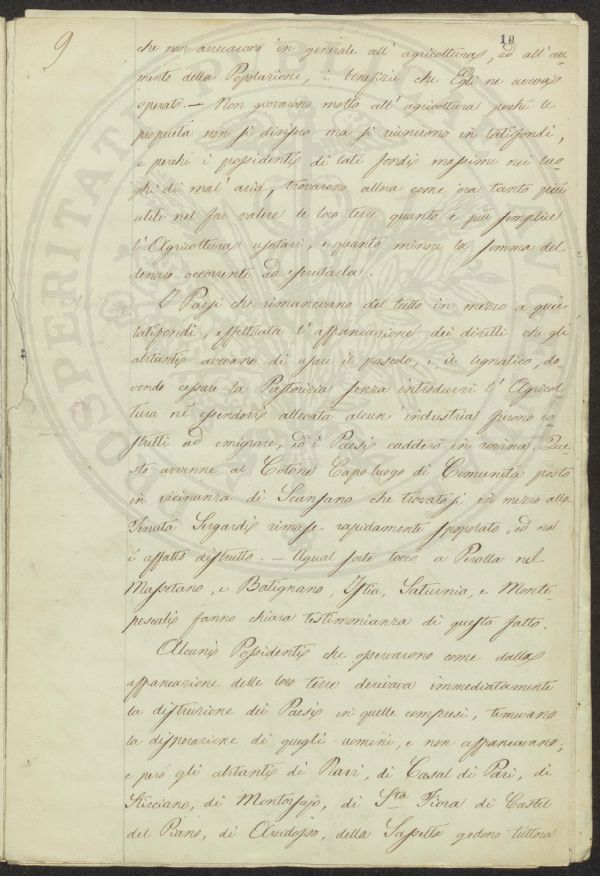 9
10
che non arrecarono in generale all' agricoltura, ed all' au-
mento della Popolazione, i benefizii che Egli ne aveva
sperato. — Non giovarono molto all' agricoltura perchè le
proprietà non si divisero ma si riunirono in latifondi,
e perchè i possidenti di lati fondi massime nei luo-
ghi di mal' aria, trovarono allora come ora tanto più
utile nel far valere le loro terre quanto è più semplice
l' Agricoltura usatavi, e quanto minore la somma del
denaro occorrente ad esercitarla.
I Paesi che rimanevano del tutto in mezzo a quei
latifondi, effettuata l' affrancazione dei diritti che gli
abitanti avevano di usare il pascolo, e il legnatico, do
vendo cessare la Pastorizia senza introdurvi l' Agricol
tura nè essendovi allevata alcun' industria furono co
stretti ad emigrare, ed i Paesi caddero in rovina. Que
sto avvenne al Cotone Capo luogo di Comunità posto
in vicinanza di Scansano che trovatosi in mezzo alla
Tenuta Sergardi rimase rapidamente spopolato, ed ora
è affatto distrutto. — Ugual sorte toccò a Perolla nel
Massetano, e Batignano, Istia, Saturnia, e Monte-
pescali fanno chiara testimonianza di questo fatto.
Alcuni Possidenti che osservarono come dalla
affrancazione delle loro terre derivava immediatamente
la distruzione dei Paesi in quelle compresi, temevano
la disperazione di quegli uomini, e non affrancavano;
e però gli abitanti di Ravi, di Casal di Pari, di
di Montorsajo, di Sta Fiora di Castel
del Piano, di Arcidosso, della Sassetta godono tuttora
PROSPERITATI PUBLICAE